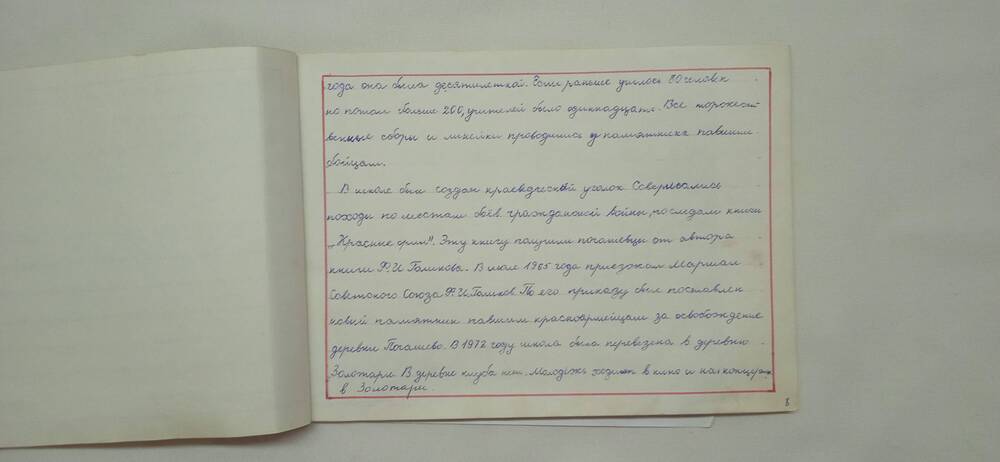 года она была десятилеткой. Если раньше училось 80 человек
то потом больше 200, учителей было одиннадцать. Все торжест
венные сборы и линейки проводились у памятника павшим
бойцам.
В школе был создан краеведческий уголок Совершались
походы по местам боёв гражданской войны, последам книги
„Красные орлы". Эту книгу получили погошевцы от автора
книги Ф.И Голикова. В июле 1965 года приезжал Маршал
Советского Союза Ф.И.Голиков. По его приказу был поставлен
новый памятник павшим красноармейцам за освобождение
деревни В 1972 году школа была перевезена в деревню
Золотари В деревне клуба нет. Молодёжь ходит в кино и на концерты
в Золотари.
8